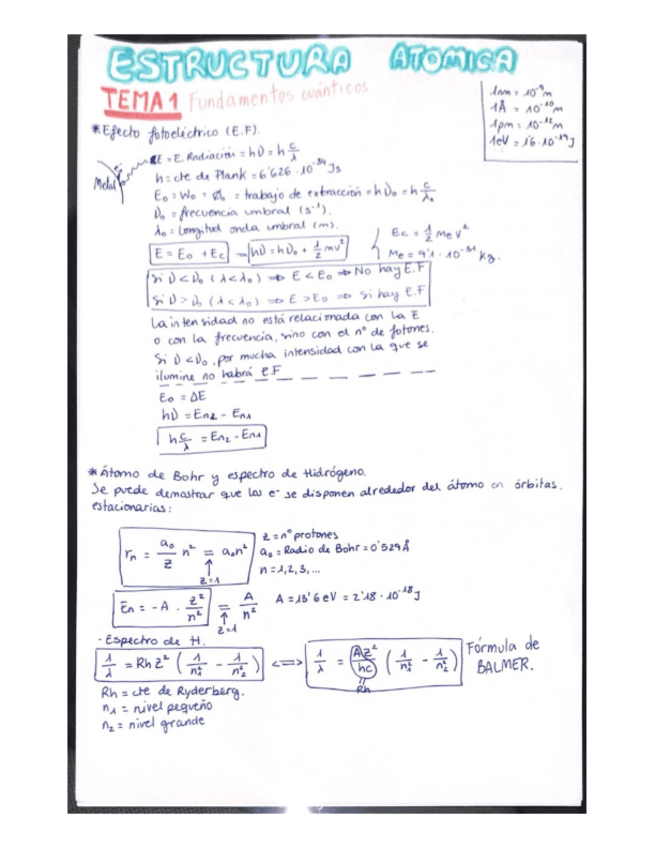 ESTRUCTURA ATOMICA
TEMA 1 Fundamentos cuánticos.
1nm = 10⁻⁹m
1Å = 10⁻¹⁰m
1pm = 10⁻¹²m
1eV = 1'6·10⁻¹⁹J
*Efecto fotoeléctrico (E.F).
Metal
E = E Radiación = hν = h c/λ
h = cte de Plank = 6'626·10⁻³⁴ Js
E₀ = W₀ = Φ₀ = trabajo de extracción = hν₀ = h c/λ₀
ν₀ = frecuencia umbral (s⁻¹).
λ₀ = Longitud onda umbral (m).
E = E₀ + Ec → hν = hν₀ + 1/2 mv²
Ec = 1/2 Me v²
Me = 9'1·10⁻³¹ kg.
Si ν < ν₀ (λ < λ₀) ⇒ E < E₀ ⇒ No hay E.F
Si ν > ν₀ (λ < λ₀) ⇒ E > E₀ ⇒ Si hay E.F
La intensidad no está relacionada con la E
o con la frecuencia, sino con el nº de fotones.
Si ν < ν₀, por mucha intensidad con la que se
ilumine no habrá E.F
E₀ = ΔE
hν = En₂ - En₁
h c/λ = En₂ - En₁
*Átomo de Bohr y espectro de Hidrógeno.
Se puede demostrar que los e⁻ se disponen alrededor del átomo en órbitas
estacionarias:
rn = a₀/Z n² = a₀n²
Z=1
Z = nº protones
a₀ = Radio de Bohr = 0'529 Å
n = 1,2,3,...
En = -A · Z²/n² = A/n²
Z=1
A = 13'6 eV = 2'18·10⁻¹⁸ J
- Espectro de H.
1/λ = Rh Z² (1/n₁² - 1/n₂²) <=> 1/λ = AZ²/hc (1/n₁² - 1/n₂²)
Rh
Fórmula de
BALMER.
Rh = cte de Ryderberg.
n₁ = nivel pequeño
n₂ = nivel grande